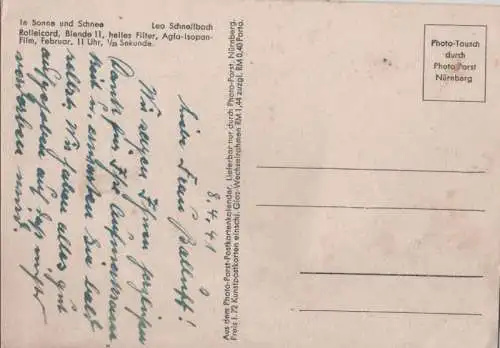 In Sonne und Schnee Leo Schneiflbach
Rolleicord, Blende 11, helles Filter, Agfa-Isopan-
Film, Februar, 11 Uhr, 1/25 Sekunde.
Photo-Tausch
durch
Photo Porst
Nürnberg
Aus dem Photo-Porst-Postkartenkalender. Lieferbar nur durch Photo-Porst, Nürnberg.
Preis f. 72 Kunstpostkarten einschl. Glas-Wechselrahmen RM 1,44 zuzgl. RM 0,40 Porto.
8.4.41
Liebe Frau Balluff!
Wir sagen Ihnen herzlichen
Dank für Ihre Aufmerksam-
keit u.
selbst. Wir haben alles gut
aufgehoben auf daß nichts